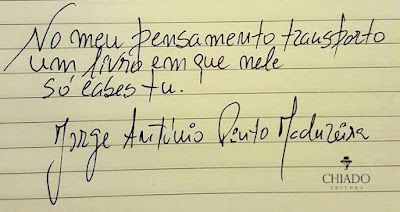 No meu pensamento transporto
um livro em que nele
só cabes tu.
Jorge António Pinto Madureira
CHIADO
EDITORA